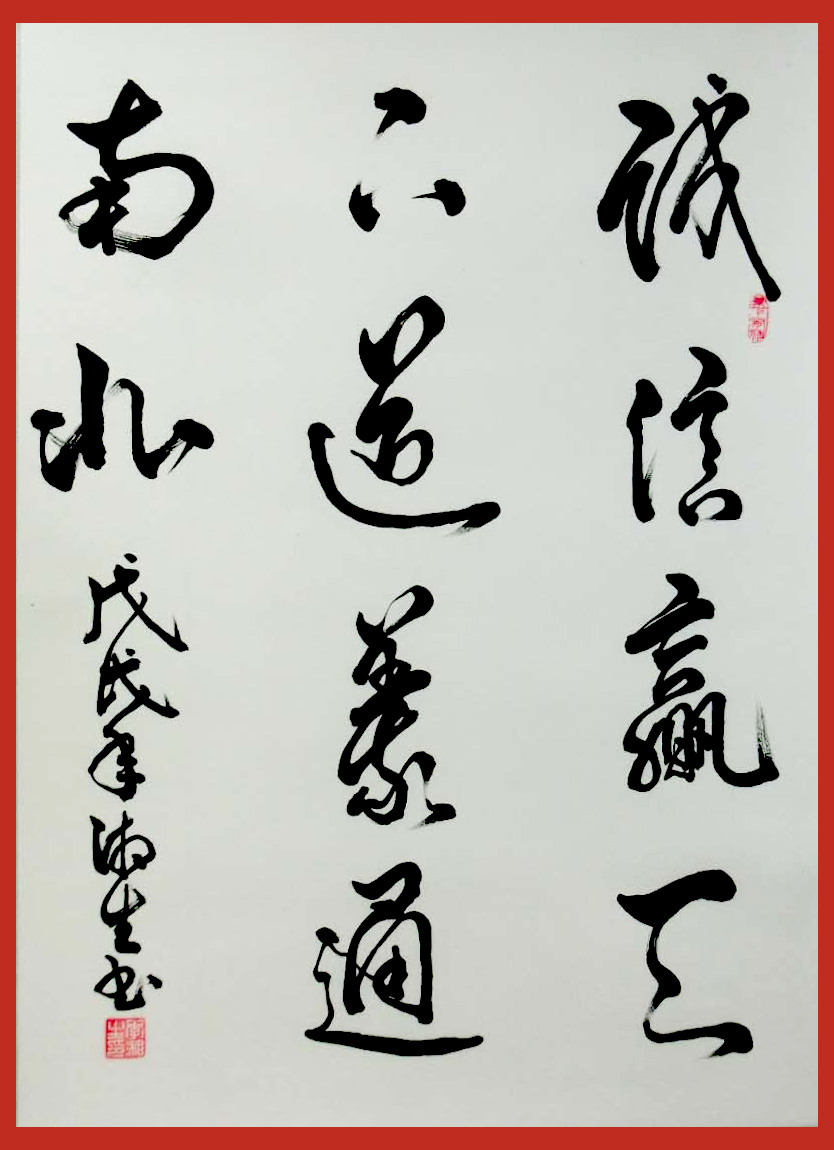 诚信赢天
下道義通
南北
戊戌年湘生书